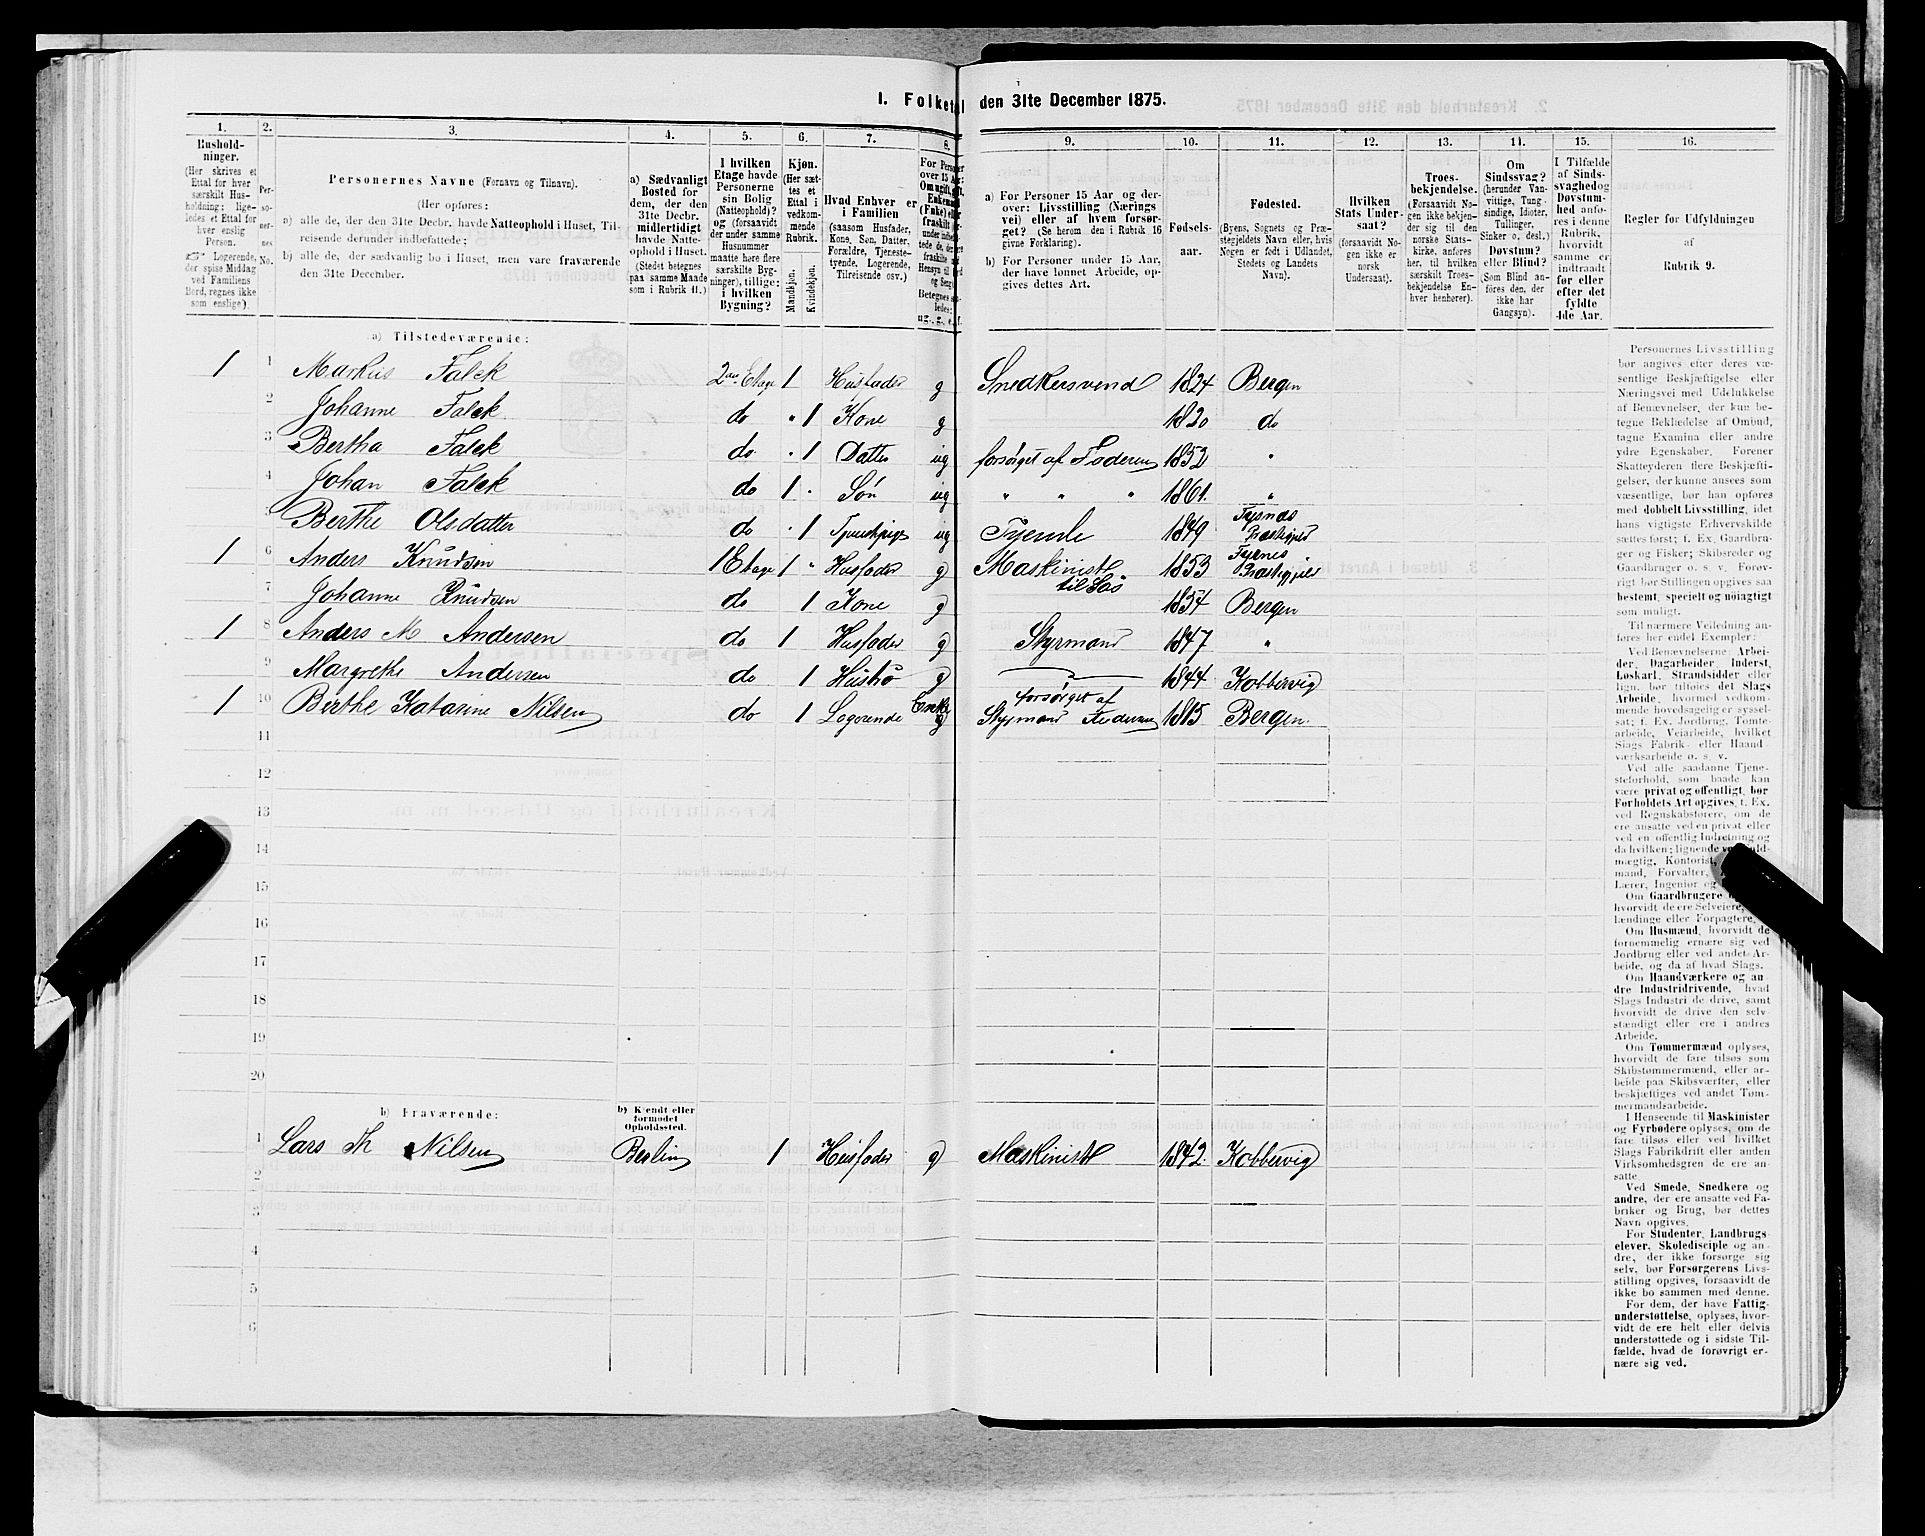 1. Folketal den 31te December 1875.
1. 2. 3. 4. 5. 6. 7. 8. 9. 10. 11. 12. 13. 14. 15. 16.
Hushold-
ninger.
(Her skrives et
Ettal for hver
særskilt Hus-
holdning; lige-
ledes et Ettal for
hver enslig
Person.
Logerende,
der spise Middag
ved Familiens
Bord, regnes ikke
som enslige).
Per-
so-
ner-
nes
No.
Personernes Navne (Fornavn og Tilnavn).
(Her opføres:
a) alle de, der den 31te Decbr. havde Natteophold i Huset, Til-
reisende derunder indbefattede;
b) alle de, der sædvanlig bo i Huset, men vare fraværende
den 31te December.
a) Sædvanligt
Bosted for
dem, der den
31te Decbr.
midlertidigt
havde Natte-
ophold i Huset.
(Stedet betegnes
paa samme Maade
som i Rubrik 11.)
I hvilken
Etage havde
Personerne
sin Bolig
(Natteophold)?
og (forsaavidt
der under samme
Husnummer
maatte høre flere
særskilte Byg-
ninger), tillige:
i hvilken
Bygning?
Kjøn.
(Her sæt-
tes et
Ettal i
vedkom-
mende
Rubrik.
Mandkjøn.
Kvindekjøn.
Hvad Enhver er
i Familien
(saasom Husfader,
Kone, Søn, Datter,
Forældre, Tjeneste-
tyende, Logerende,
Tilreisende osv.)
a) For Personer 15 Aar og der-
over: Livsstilling (Nærings
vei) eller af hvem forsør-
get? (Se herom den i Rubrik 16
givne Forklaring).
b) For Personer under 15 Aar,
der have lønnet Arbeide, op-
gives dettes Art.
Fødsels-
aar.
Fødested.
(Byens, Sognets og Præ-
stegjeldets Navn eller, hvis
Nogen er født i Udlandet,
Stedets og Landets
Navn).
Hvilken
Stats Under-
saat?
(forsaavidt No-
gen ikke er
norsk
Undersaat).
Troes-
bekjendelse.
(Forsaavidt No-
gen ikke bekjen-
der sig til den
norske Stats-
kirke, anføres
her, til hvilken
særskilt Troes-
bekjendelse En-
hver henhører).
Om
Sindssvag?
(herunder Van-
vittige, Tung-
sindige, Idioter,
Tullinger,
Sinker o. desl.)
Døvstum?
eller Blind?
(Som Blind an-
føres den, der
ikke har
Gangsyn).
I Tilfælde
af Sinds-
svaghed og
Døvstum-
hed anfø-
res i denne
Rubrik,
hvorvidt
samme er
indtraadt
før eller
efter det
fyldte
4de Aar.
Regler for Udfyldningen
af
Rubrik 9.
a) Tilstedeværende:
1 1 Markus Falck 2den Etage 1 Husfader g Snedkersvend 1824 Bergen
2 Johanne Falck do " 1 Kone g 1820 do
3 Bertha Falck do " 1 Datter ug forsørget af Faderen 1852 "
4 Johan Falck do 1 " Søn ug " " " 1861 "
5 Berthe Olsdatter do " 1 ug Tjende 1849 Tysnæs Præstegjeld
1 6 Anders Knudsen 1 Etage 1 " Husfader g Maskinist til Søs 1853 Præstegjeld
7 Johanne Knudsen do 1 Kone g 1854 Bergen
1 8 Anders M Andersen do 1 Husfader g Styrmand 1847 "
9 Margrethe Andersen do 1 Hustrø g 1844 Kobbervig
1 10 Birthe Katarine Nilsen do 1 Logerende Enke forsørget af Styrmand Andersen 1815 Bergen.
11
12
13
14
15
16
17
18
19
20
b) Fraværende:
b) Kjendt eller
formodet
Opholdssted.
1 Lars Th Nilsen Berlin 1 Husfader g Maskinist 1842 Kobbervig
2
3
4
5
6
Personernes Livsstilling
bør angives efter deres væ-
sentlige Beskjæftigelse eller
Næringsvei med Udelukkelse
af Benævnelser, der kun be-
tegne Beklædelse af Ombud,
tagne Examina eller andre
ydre Egenskaber. Forener
Skatteyderen flere Beskjæfti-
gelser, der kunne ansees som
væsentlige, bør han opføres
med dobbelt Livsstilling, idet
hans vigtigste Erhvervskilde
sættes først; f. Ex. Gaardbru-
ger og Fisker; Skibsreder og
Gaardbruger o. s. v. Forøv-
rigt bør Stillingen opgives saa
bestemt, specielt og nøiagtigt
som muligt.
Til nærmere Veiledning an-
føres her endel Exempler:
Ved Benævnelserne: Arbei-
der, Dagarbeider, Inderst,
Løskarl, Strandsidder eller
lign. bør tilføies det Slags
Arbeide, hvormed vedkom-
mende hovedsagelig er syssel-
sat; f. Ex. Jordbrug, Tomte-
arbeide, Veiarbeide, hvilket
Slags Fabrik- eller Haand-
værksarbeide o. s. v.
Ved alle saadanne Tjene-
steforhold, som baade kan
være privat og offentligt, bør
Forholdets Art opgives, f. Ex.
ved Regnskabsførere, om de
ere ansatte ved en privat eller
ved en offentlig Indretning og
da hvilken; lignende
mægtig, Kontorist,
mand, Forvalter,
Lærer, Ingeniør og
Om Gaardbrugere
hvorvidt de ere Selveiere,
Lændinge eller Forpagtere,
Om Husmænd, hvorvidt de
fornemmelig ernære sig ved
Jordbrug eller ved andet Ar-
beide, og da af hvad Slags.
Om Haandværkere og an-
dre Industridrivende, hvad
Slags Industri de drive, samt
hvorvidt de drive den selv-
stændigt eller ere i andres
Arbeide.
Om Tømmermænd oplyses,
hvorvidt de fare tilsøs som
Skibstømmermænd, eller ar-
beide paa Skibsværfter, eller
beskjæftiges ved andet Tøm-
mermandsarbeide.
I Henseende til Maskinister
og Fyrbødere oplyses, om de
fare tilsøs eller ved hvilket
Slags Fabrikdrift eller anden
Virksomhedsgren de ere an-
satte.
Ved Smede, Snedkere og
andre, der ere ansatte ved Fa-
briker og Brug, bør dettes
Navn opgives.
For Studenter, Landbrugs-
elever, Skoledisciple og an-
dre, der ikke forsørge sig
selv, bør Forsørgerens Livs-
stilling opgives, forsaavidt de
ikke bo sammen med denne.
For dem, der have Fattig-
understøttelse, oplyses, hvor-
vidt de ere helt eller delvis
understøttede og i sidste Til-
fælde, hvad de forøvrigt er-
nære sig ved.